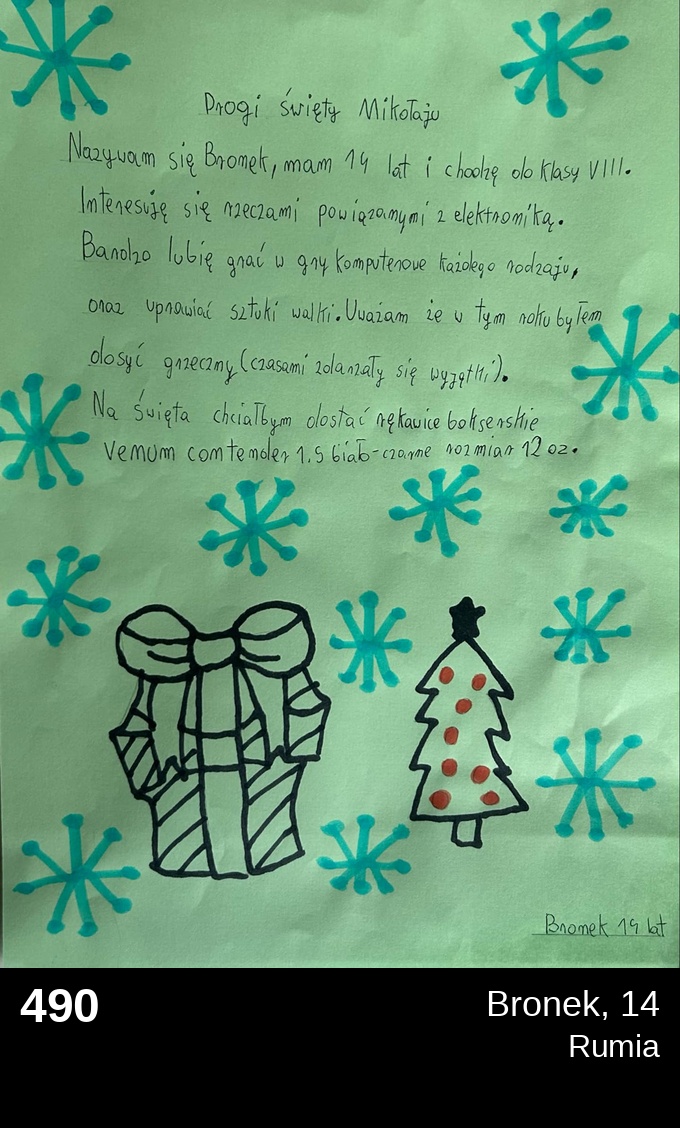 Drogi święty Mikołaju
Nazywam się Bronek, mam 14 lat i chodzę do klasy VIII.
Interesuję się rzeczami powiązanymi z elektroniką.
Bardzo lubię grać w gry komputerowe każdego rodzaju,
oraz uprawiać sztuki walki. Uważam że w tym roku byłem
dosyć grzeczny (czasami zdarzały się wyjątki).
Na święta chciałbym dostać rękawice bokserskie
Venum contender 1.5 biało-czarne rozmiar 12 oz.
Bronek 14 lat
490
Bronek, 14
Rumia